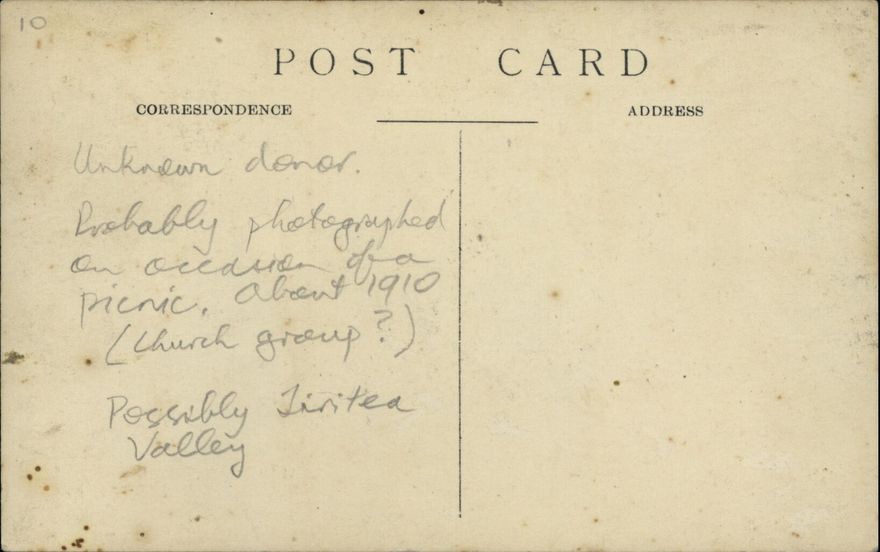 10
POST CARD
CORRESPONDENCE
ADDRESS
Unknown donor.
Probably photographed
on occasion of a
picnic. About 1910
(Church group?)
Possibly Tiritea
Valley